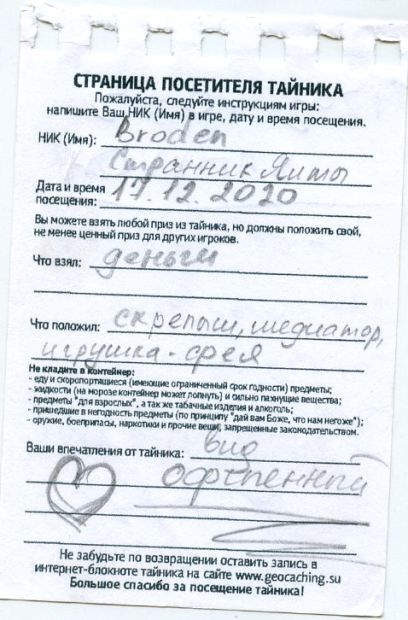 СТРАНИЦА ПОСЕТИТЕЛЯ ТАЙНИКА
Пожалуйста, следуйте инструкциям игры:
напишите Ваш НИК (Имя) в игре, дату и время посещения.
НИК (Имя): Broden
Странник Ялты
Дата и время
посещения: 17.12.2020
Вы можете взять любой приз из тайника, но должны положить свой,
не менее ценный приз для других игроков.
Что взял: деньги
Что положил: скрепыш, медиатор,
игрушка-фея
Не кладите в контейнер:
- еду и скоропортящиеся (имеющие ограниченный срок годности) предметы;
- жидкости (на морозе контейнер может лопнуть) и сильно пахнущие вещества;
- предметы "для взрослых", а так же табачные изделия и алкоголь;
- пришедшие в негодность предметы (по принципу "дай вам Боже, что нам негоже");
- оружие, боеприпасы, наркотики и прочие вещи, запрещенные законодательством.
Ваши впечатления от тайника: вид
офигенный
Не забудьте по возвращении оставить запись в
интернет-блокноте тайника на сайте www.geocaching.su
Большое спасибо за посещение тайника!